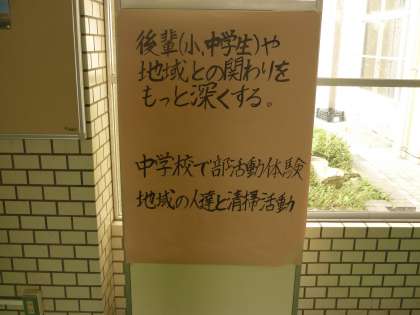 後輩(小、中学生)や
地域との関わりを
もっと深くする。
中学校で部活動体験
地域の人達と清掃活動